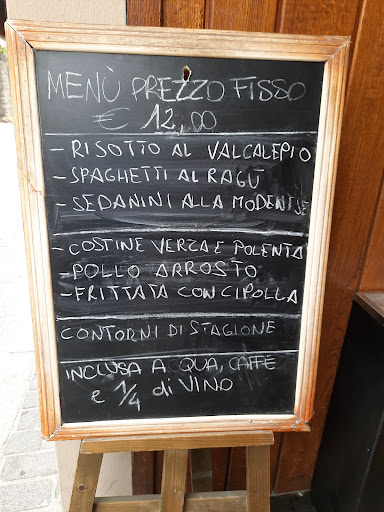 MENÙ PREZZO FISSO
€ 12,00
- RISOTTO AL VALCALEPIO
- SPAGHETTI AL RAGÙ
- SEDANINI ALLA MODENESE
- COSTINE VERZA E POLENTA
- POLLO ARROSTO
- FRITTATA CON CIPOLLA
CONTORNI DI STAGIONE
INCLUSA A QUA, CAFFÈ
e 1/4 di VINO